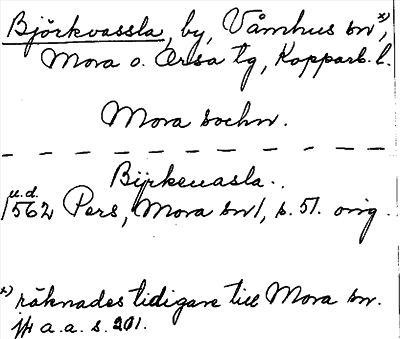 Björkvassla, by, Våmhus sn x),
Mora o. Orsa tg, Kopparb. l.
Mora sochn.
Birkeuasla..
u.d.
1562 Pers, Mora sn 1, s. 51. orig.
x) räknades tidigare till Mora sn.
jfr a.a. s. 201.